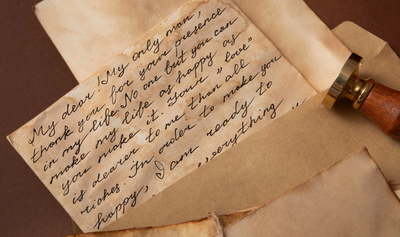 My dear! My only mon,
thank you for your presence
in my life. No one but you can
make my life as happy as
you make it. Your "love"
is dearer to me than all
riches. In order to make you
happy, I am ready to
everything